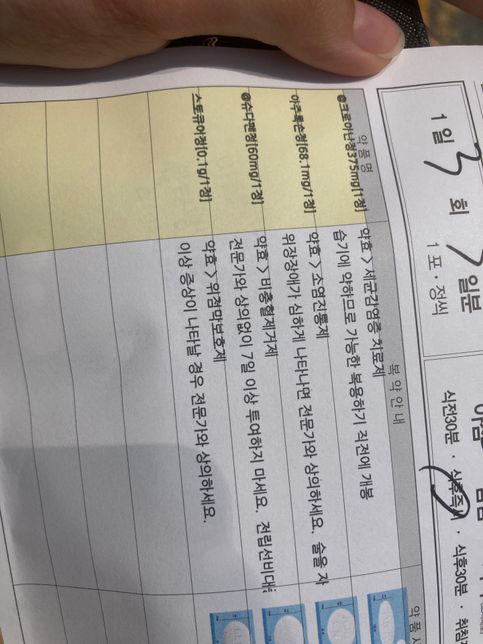 1일 3 회 7 일분
1포 · 정씩
식전30분 · 식후즉시 · 식후30분 ·
약품명
복약안내
크로아난정375mg[1정]
약효 > 세균감염증 치료제
습기에 약하므로 가능한 복용하기 직전에 개봉
아주록손정[68.1mg/1정]
약효 > 소염진통제
위장장애가 심하게 나타나면 전문가와 상의하세요. 술을 자
슈다펜정[60mg/1정]
약효 > 비충혈제거제
전문가와 상의없이 7일 이상 투여하지 마세요. 전립선비대
스토큐어정[0.1g/1정]
약효 > 위점막보호제
이상 증상이 나타날 경우 전문가와 상의하세요.